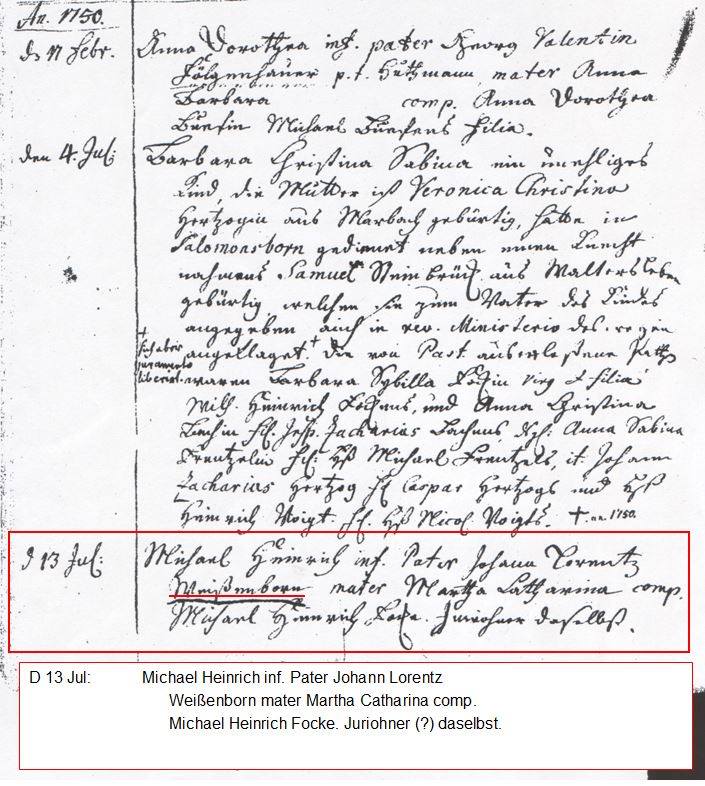 An. 1750.
d. 17 Febr. Anna Dorothea inf. pater Georg Valentin
Fölgenhauer p.t. Hutmann, mater Anna
Barbara comp. Anna Dorothea
Michael filia.
den 4. Jul: Barbara Christina Sabina ein unehliges
Kind, die Mutter ist Veronica Christina
Hertzogin aus Marbach gebürtig, hatte in
Salomonsborn gedienet neben einen Knecht
nahmens Samuel Steinbrück aus Waltersleben
gebürtig welchen sie zum Vater des Kindes
angegeben auch in rev. Ministerio
+
sich aber
juramento
liberirt.
angeklaget. + Die von Past
waren Barbara Sybilla virg. filia
Heinrich und Anna Christina
Zacharias Anna Sabina
Frentzelin Michael Frentzels, it. Johann
Zacharias Hertzog Caspar Hertzogs und
Heinrich Voigt Nicol Voigts. + an. 1750.
d 13 Jul: Michael Heinrich inf. Pater Johann Lorentz
Weißenborn mater Martha Catharina comp.
Michael Heinrich Focke. Inwohner daselbst.
D 13 Jul: Michael Heinrich inf. Pater Johann Lorentz
Weißenborn mater Martha Catharina comp.
Michael Heinrich Focke. Juriohner (?) daselbst.